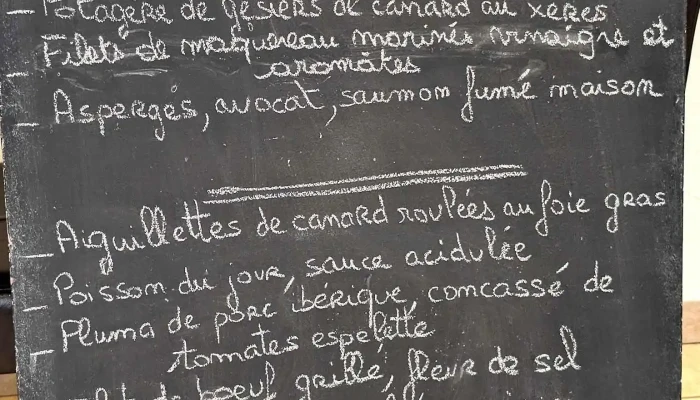 - Potagère de gésiers de canard au xeres
- Filets de maquereau marinés vinaigre et
aromates
- Asperges, avocat, saumon fumé maison
- Aiguillettes de canard roulées au foie gras
- Poisson du jour, sauce acidulée
- Pluma de porc ibérique, concassé de
tomates espelette
de boeuf grillé, fleur de sel